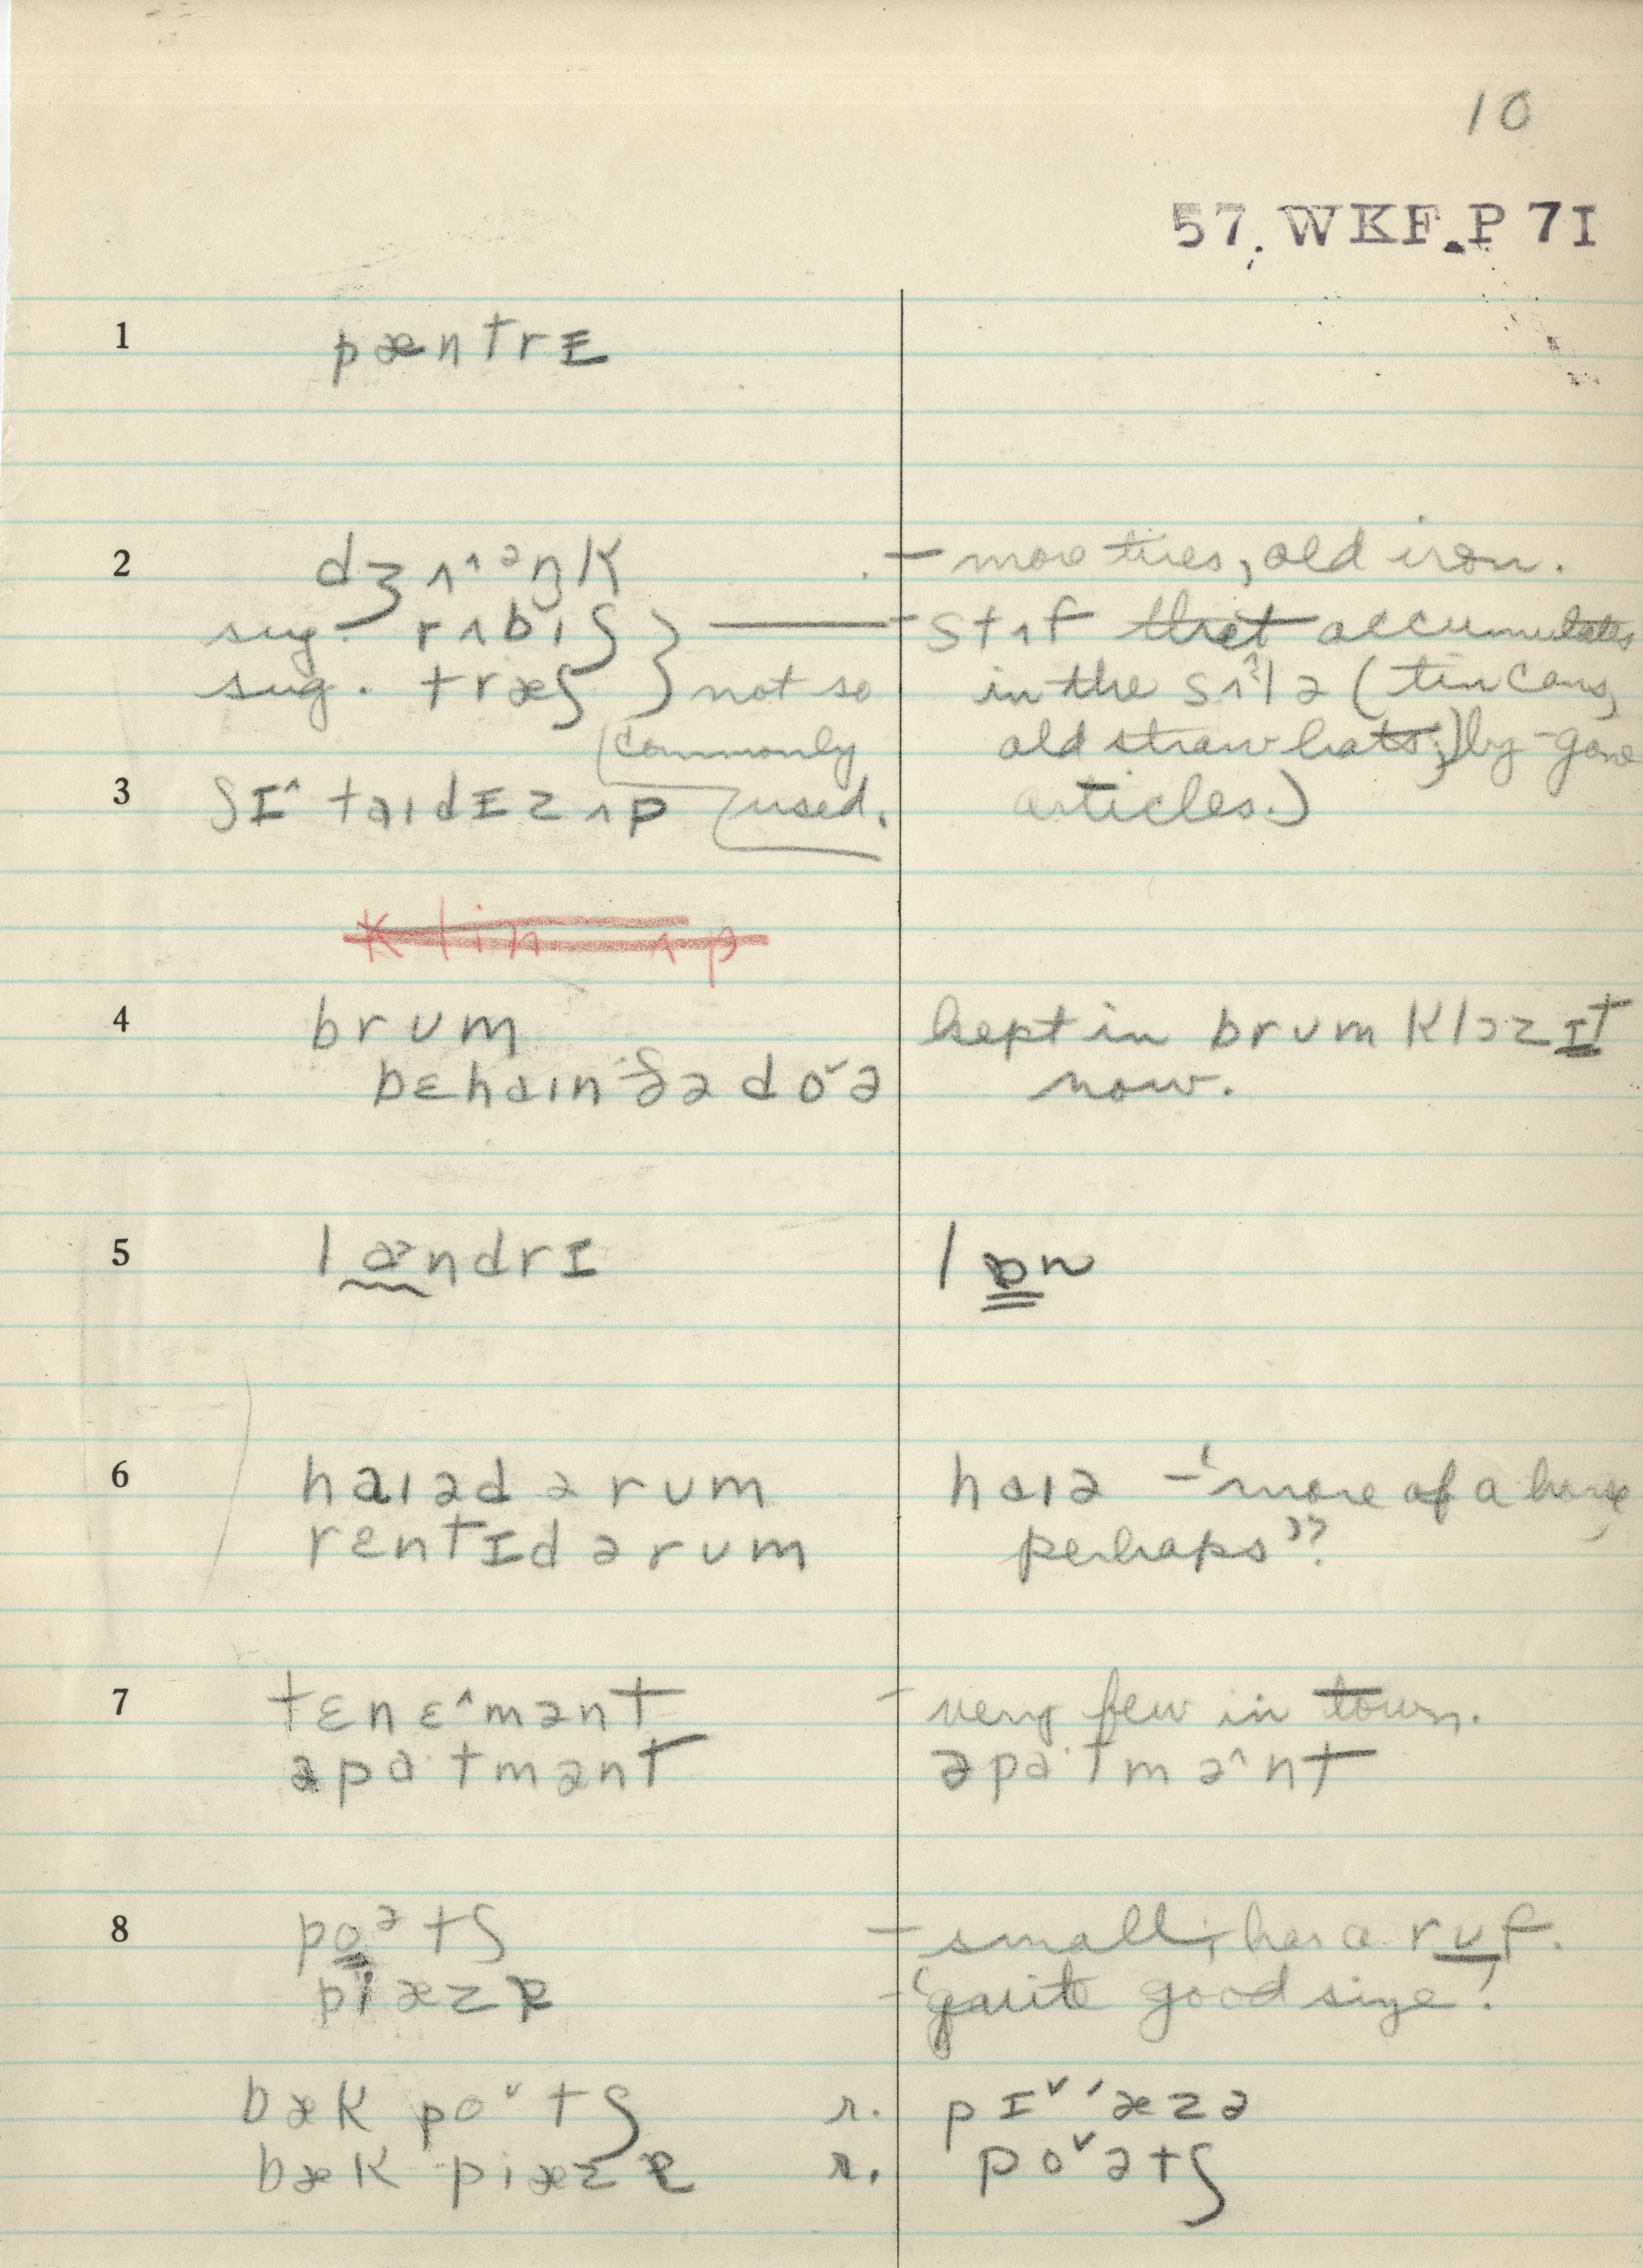 10
57. WKF. P 7I
1 pæntrɪ
2 dʒʌ˄ᵊŋk — more tires, old iron.
sug. rʌbiʃ } — stʌf that accumulates
sug. træʃ } not so in the sʌ˄lə (tin cans,
commonly old straw hats,) by-gone
3 ʃɪ˄ taɪdɪz ʌp used. articles.)
klin ʌp
4 brum kept in brum klɔzɪt
bɛhaɪn ðə do˅ə now.
5 lɒndrɪ lɒn
6 haɪəd ə rum haɪə — 'more of a house
rɛntɪd ə rum perhaps"?
7 tɛnɛ˄mənt — very few in town.
əpa·tmənt əpa·tmə˄nt
8 poᵊtʃ — small, has a ruf.
piæzɐ — 'quite good size'.
bæk po˅tʃ r. pɪ˅'æzə
bæk piæzɐ r. po˅ətʃ